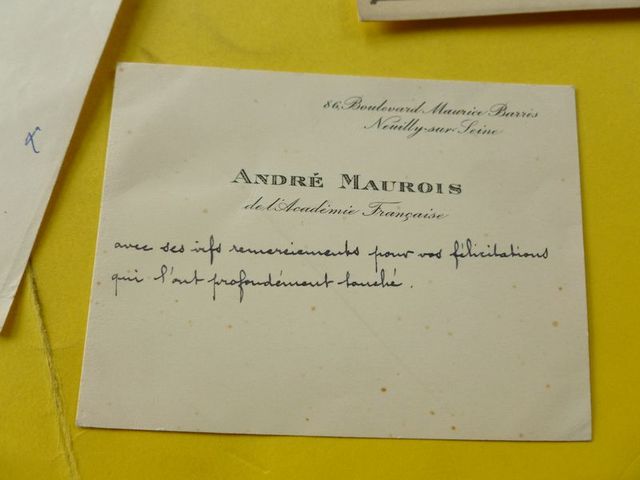 86, Boulevard Maurice Barrès
Neuilly-sur-Seine
ANDRÉ MAUROIS
de l'Académie Française
avec ses vifs remerciements pour vos félicitations
qui l'ont profondément touché.